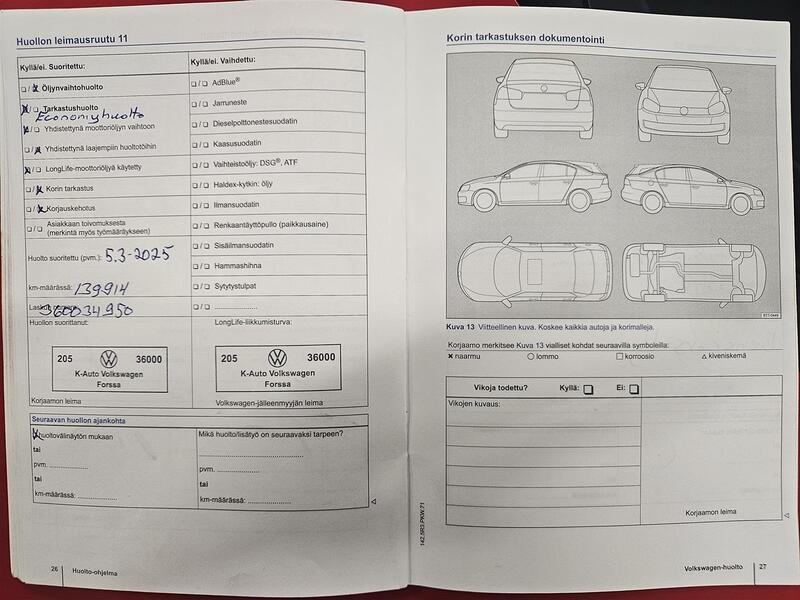 Huollon leimausruutu 11
Kyllä/ei. Suoritettu:
❏ / ❏ Öljynvaihtohuolto
❏ / ❏ Tarkastushuolto
Economyhuolto
❏ / ❏ Yhdistettynä moottoriöljyn vaihtoon
❏ / ❏ Yhdistettynä laajempiin huoltotöihin
❏ / ❏ LongLife-moottoriöljyä käytetty
❏ / ❏ Korin tarkastus
❏ / ❏ Korjauskehotus
❏ / ❏ Asiakkaan toivomuksesta
(merkintä myös työmääräykseen)
Huolto suoritettu (pvm.): 5.3-2025
km-määrässä: 139914
360034950
Huollon suorittanut:
205 36000
K-Auto Volkswagen
Forssa
Korjaamon leima
Kyllä/ei. Vaihdettu:
❏ / ❏ AdBlue®
❏ / ❏ Jarruneste
❏ / ❏ Dieselpolttonestesuodatin
❏ / ❏ Kaasusuodatin
❏ / ❏ Vaihteistoöljy: DSG®, ATF
❏ / ❏ Haldex-kytkin: öljy
❏ / ❏ Ilmansuodatin
❏ / ❏ Renkaantäyttöpullo (paikkausaine)
❏ / ❏ Sisäilmansuodatin
❏ / ❏ Hammashihna
❏ / ❏ Sytytystulpat
❏ / ❏ ....................
LongLife-liikkumisturva:
205 36000
K-Auto Volkswagen
Forssa
Volkswagen-jälleenmyyjän leima
Seuraavan huollon ajankohta
huoltovälinäytön mukaan
tai
pvm. ....................
tai
km-määrässä: ....................
Mikä huolto/lisätyö on seuraavaksi tarpeen?
....................
pvm. ....................
tai
km-määrässä: ....................
26 Huolto-ohjelma
Korin tarkastuksen dokumentointi
Kuva 13 Viitteellinen kuva. Koskee kaikkia autoja ja korimalleja.
Korjaamo merkitsee Kuva 13 vialliset kohdat seuraavilla symboleilla:
✖ naarmu ○ lommo □ korroosio △ kiveniskemä
Vikoja todettu? Kyllä: ❏ Ei: ❏
Vikojen kuvaus:
Korjaamon leima
142.5R3.PKW.71
Volkswagen-huolto 27